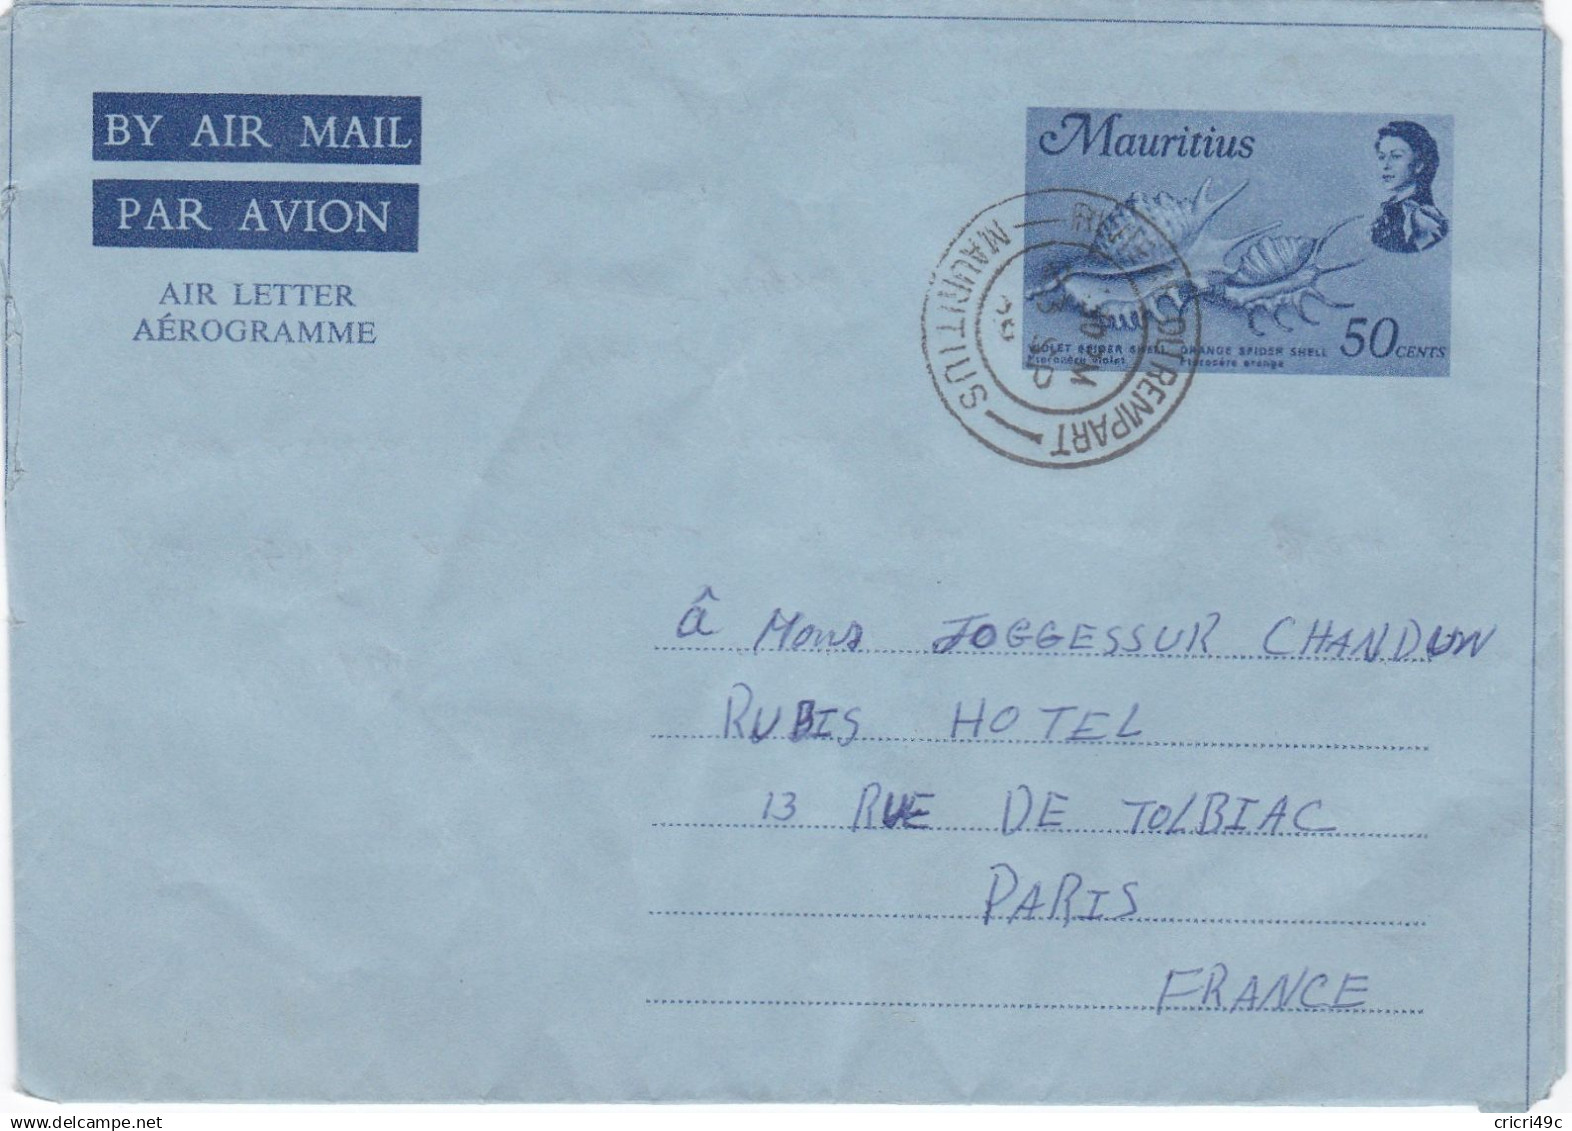 BY AIR MAIL
PAR AVION
AIR LETTER
AÉROGRAMME
Mauritius
VIOLET SPIDER SHELL ORANGE SPIDER SHELL
Pterocère violet Pterocère orange
50 CENTS
MAURITIUS
DU REMPART
â Mons JOGGESSUR CHANDUN
RUBIS HOTEL
13 RUE DE TOLBIAC
PARIS
FRANCE
www.delcampe.net
cricri49c